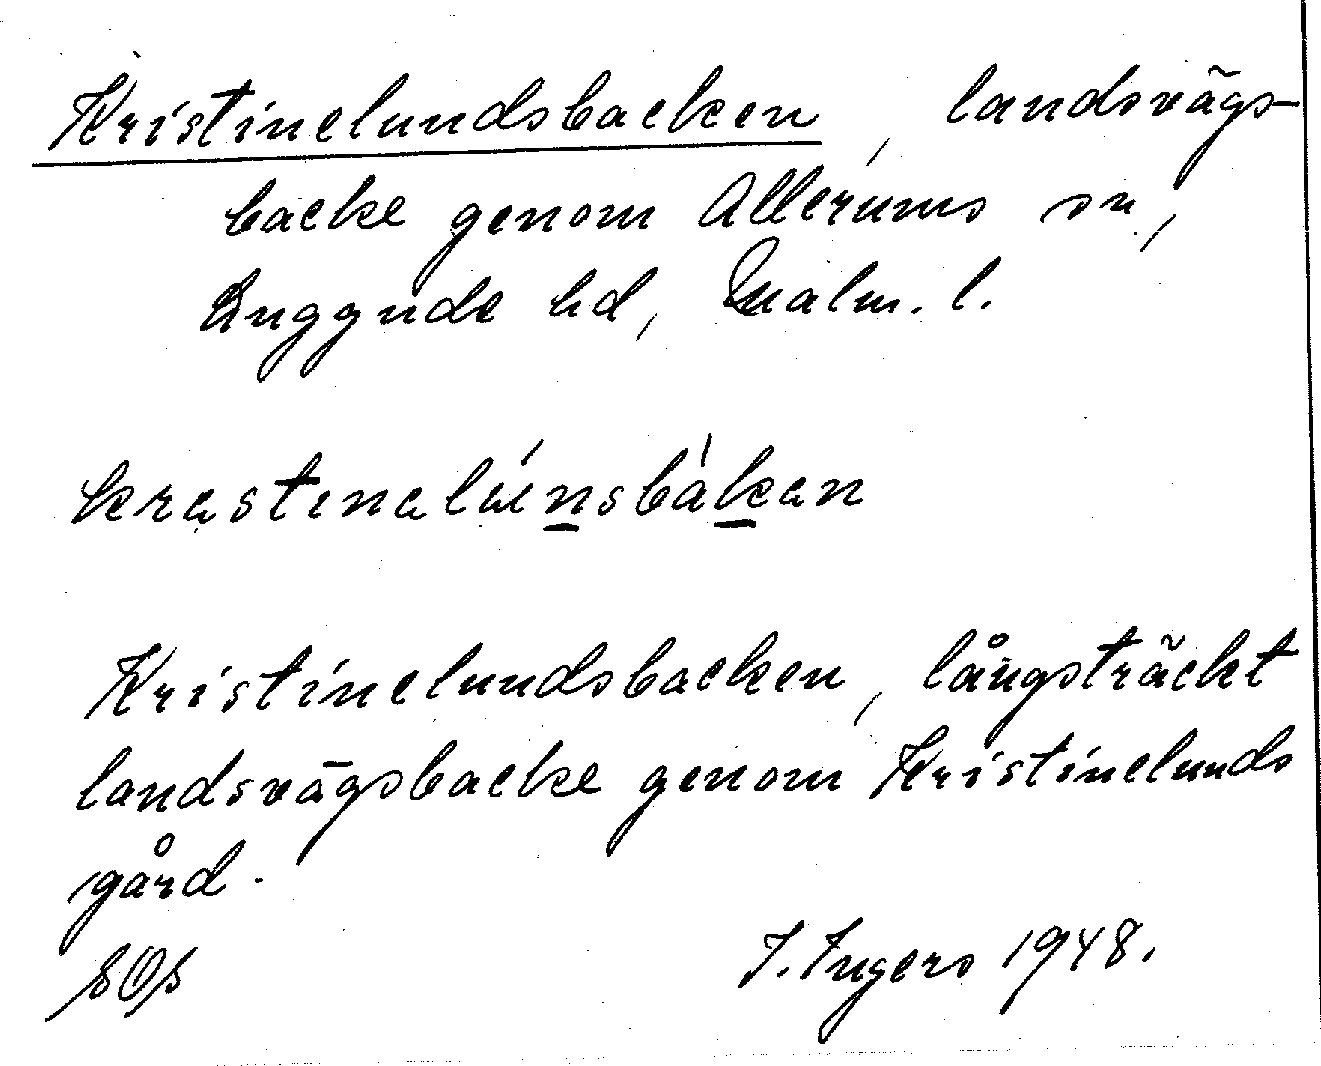 Kristinelundsbacken, landsvägs-
backe genom Allerums sn,
Luggude hd, Malm. l.
krastinalúnsbàkan
Kristinelundsbacken, långsträckt
landsvägsbacke genom Kristinelunds
gård.
I. Ingers 1948.